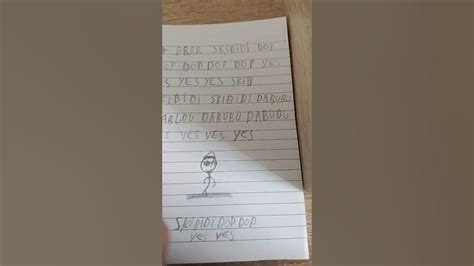 BRRR SKIBIDI DOP
OP DOP DOP DOP YES
S YES YES SKIB
KIBIDI SKIBIDI DABUDU
ABUDU DABUDU DABUDU
S YES YES YES
SKIBIDI DOP DOP
YES YES